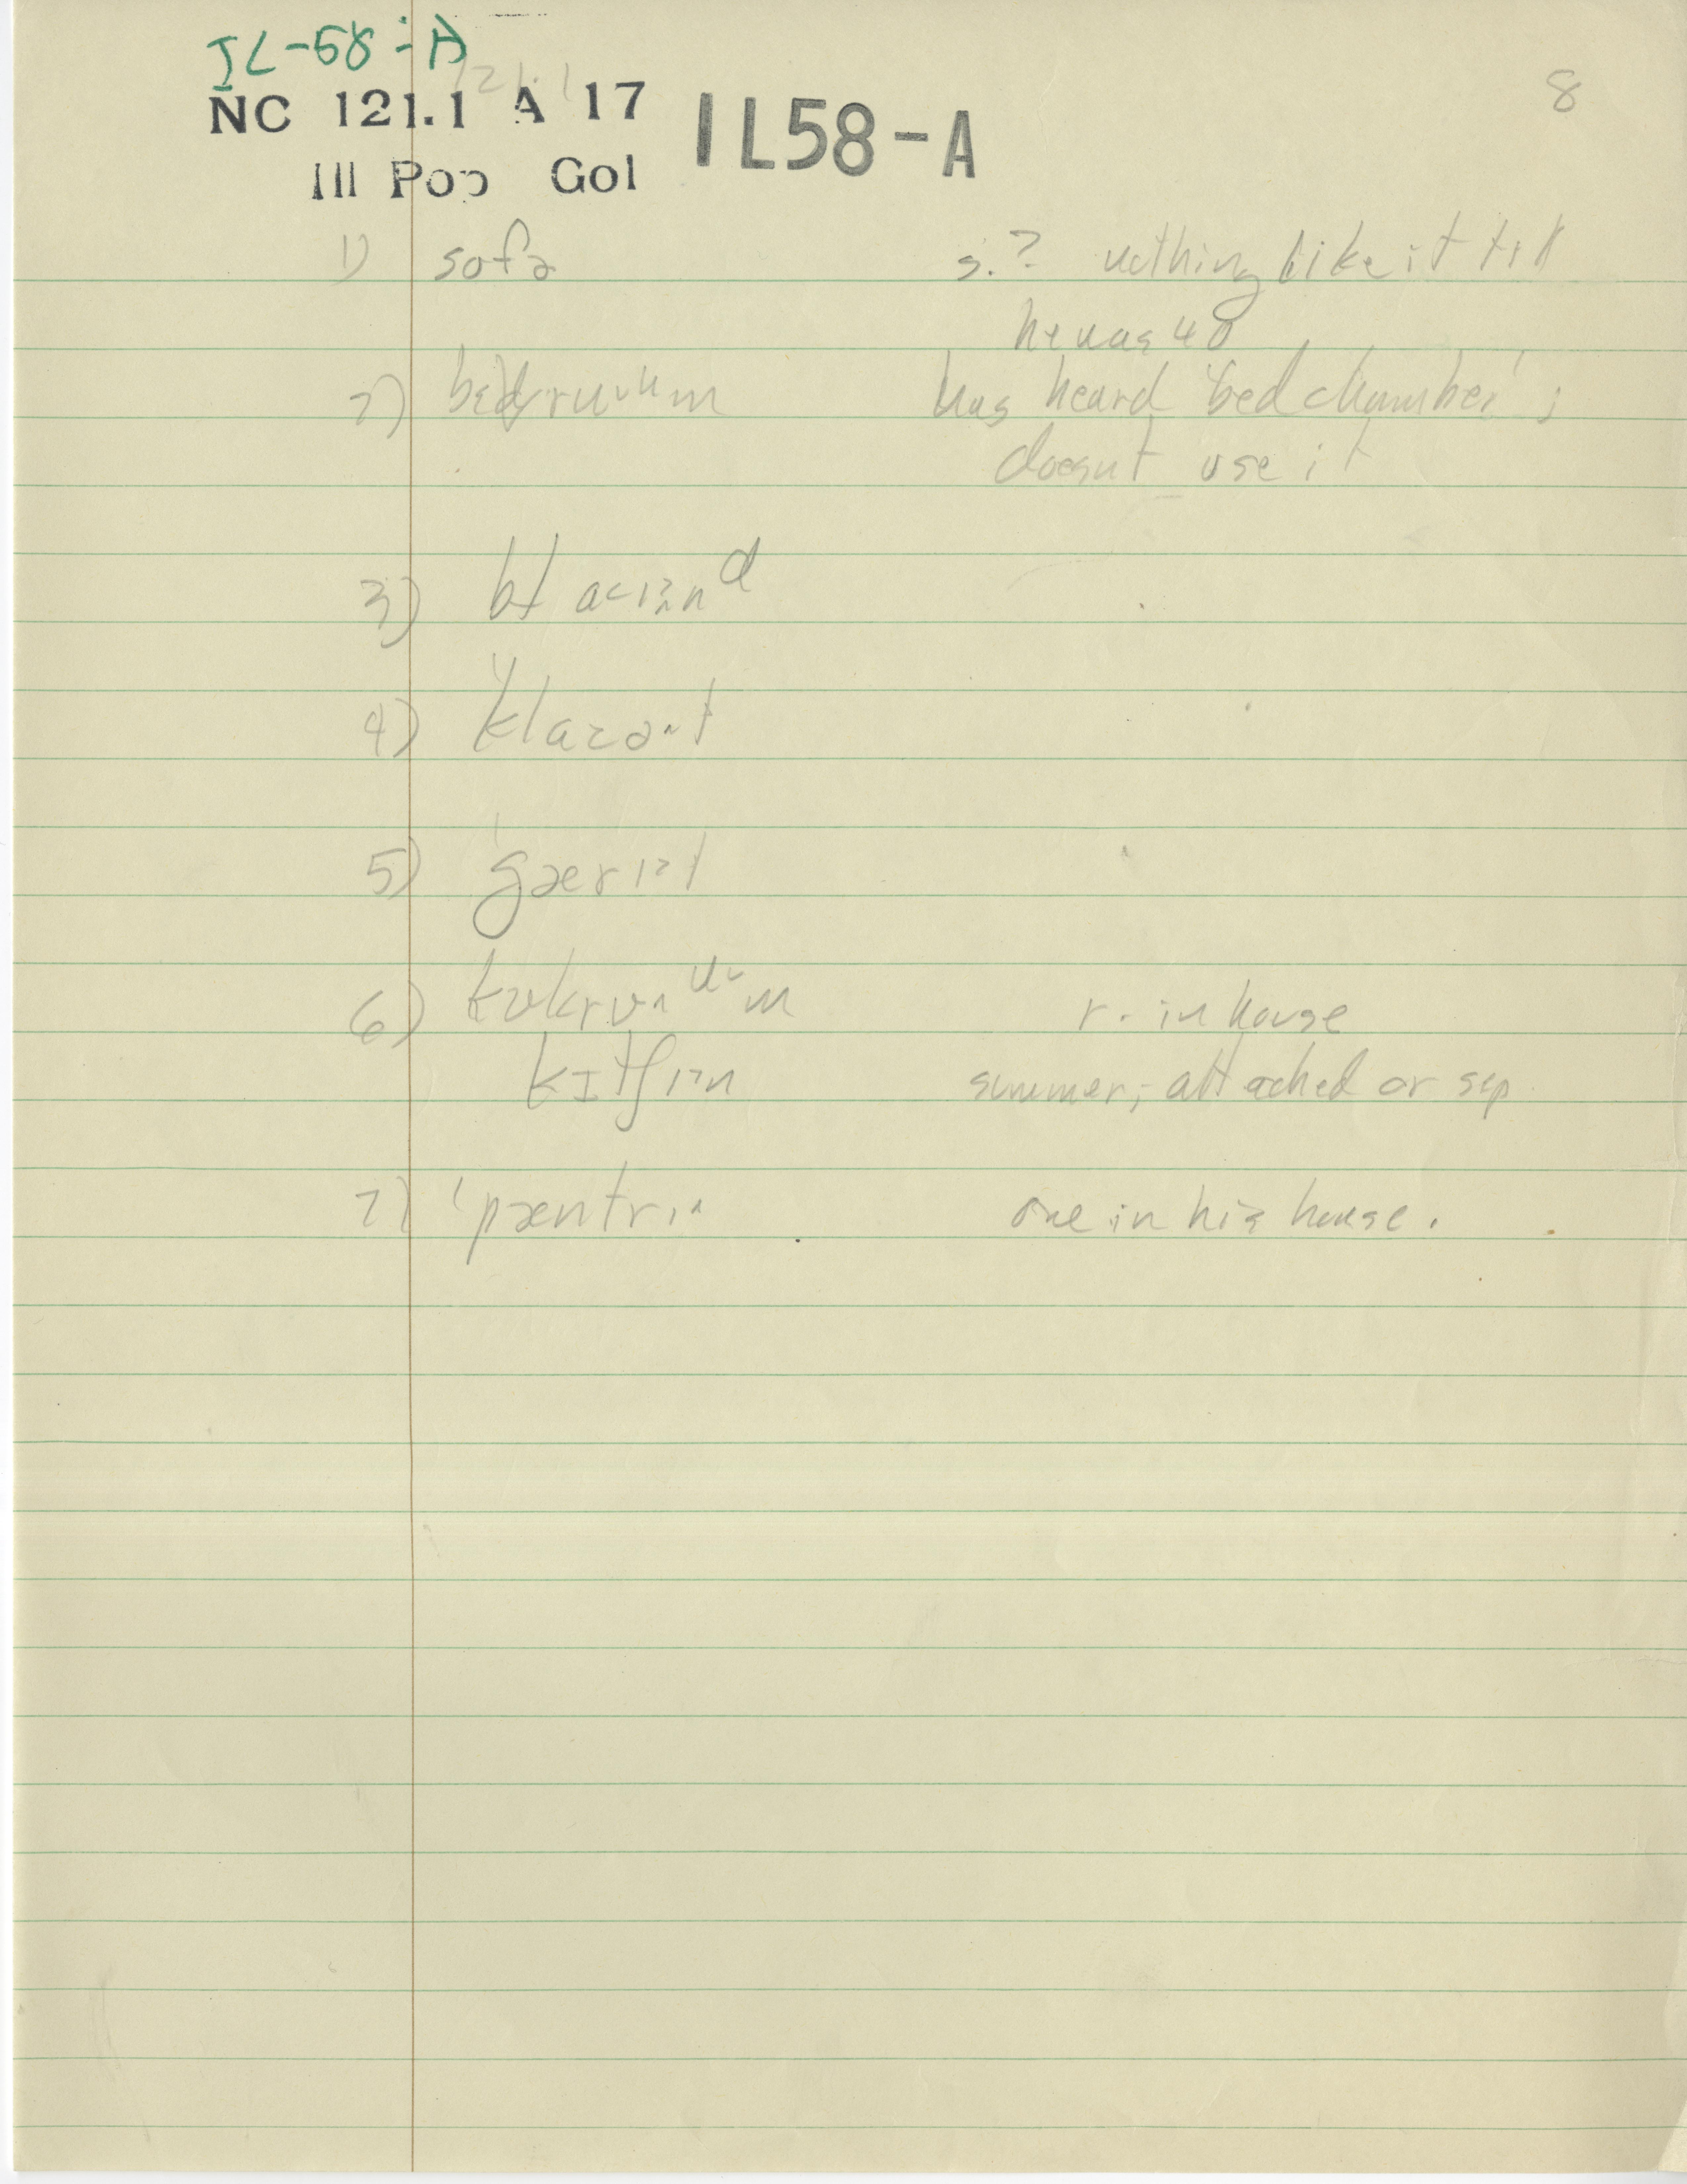 IL-58-A
121.1
NC 121.1 A 17 IL58-A 8
Ill Pop Gol
1) sofə s.? nothing like it till
he was 40
2) bɛdruᵛum has heard 'bed chamber';
doesnt use it
3)
4) 'klazət
5) 'gærɪt
6) r. in house
kɪtʃɪn summer; attached or sep.
7) 'pæntrɪ one in his house.